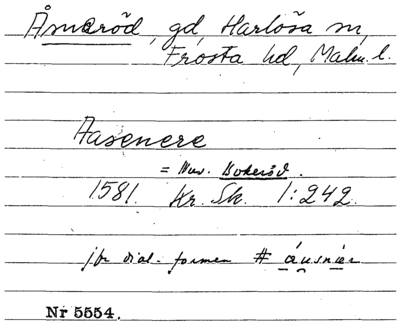 Åsmeröd, gd, Harlösa sn,
Frosta hd, Malm. l.
Aasenere
= Nuv. Bokeröd.
1581. Kr. Sk. 1:242.
jfr dial. formen # áusnièr
Nr 5554.